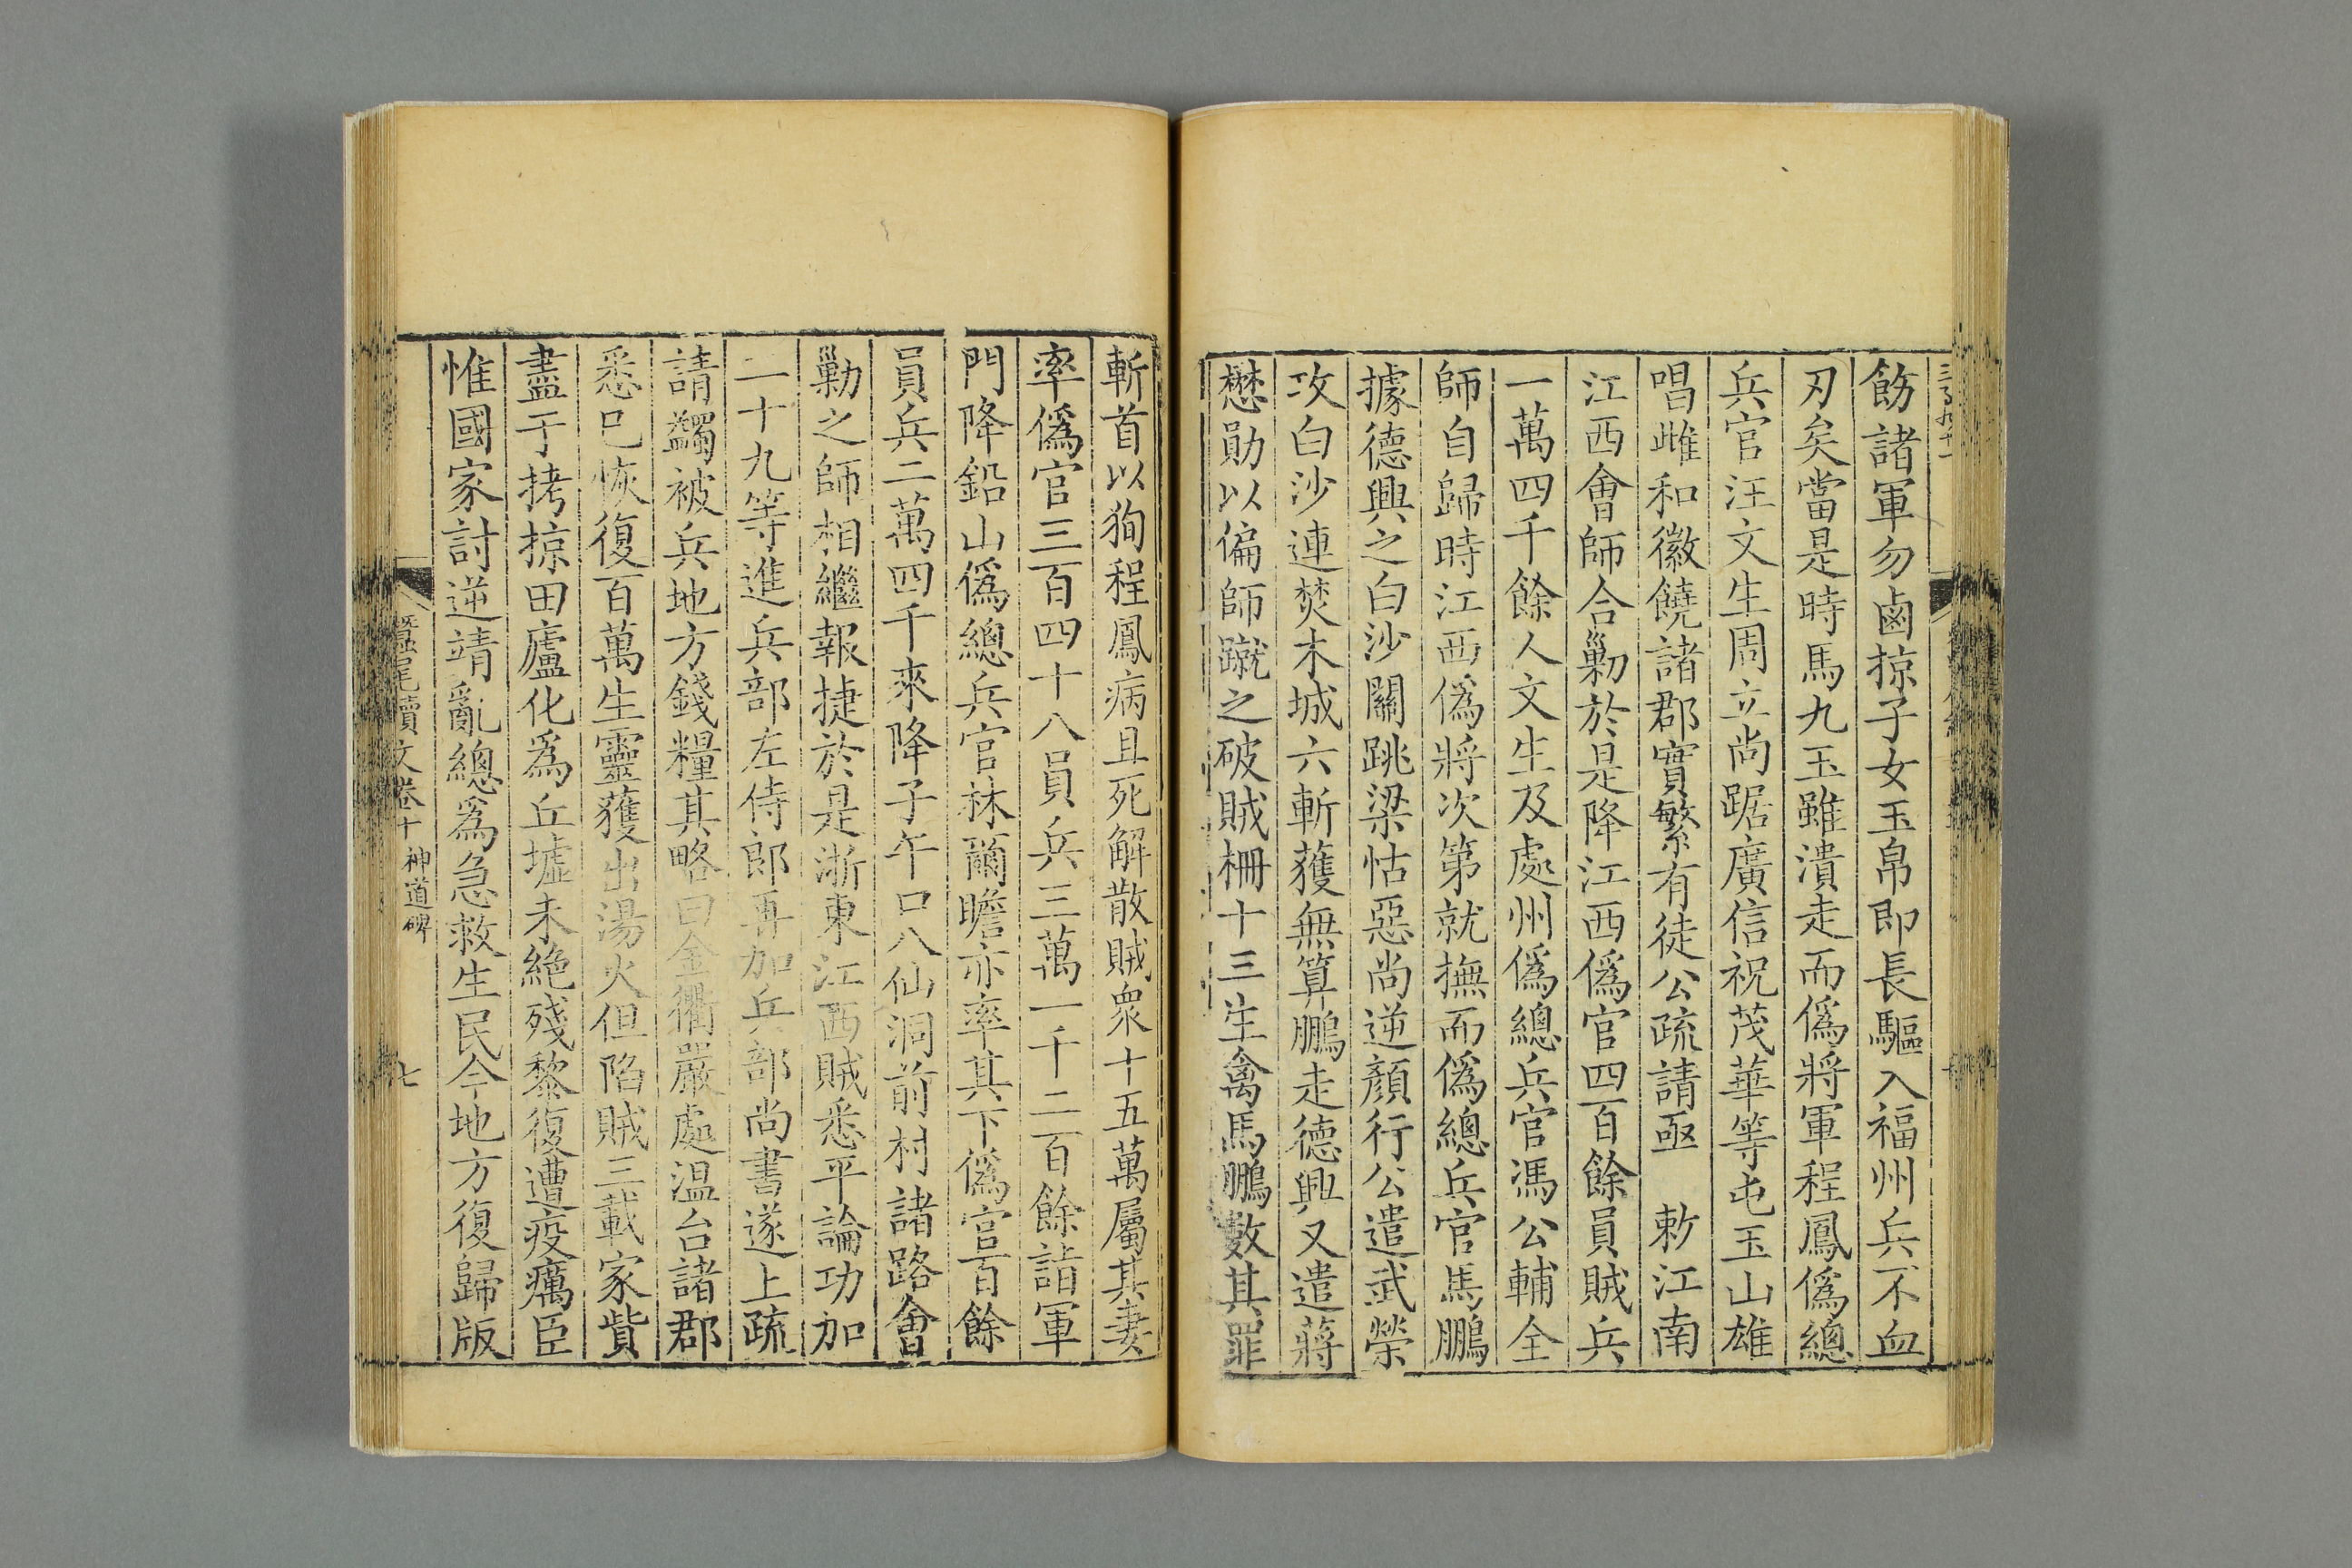 飭諸軍勿鹵掠子女玉帛即長驅入福州兵不血
刃矣當是時馬九玉雖潰走而偽將軍程鳳偽總
兵官汪文生周立尚踞廣信祝茂華等屯玉山雄
唱雌和徽饒諸郡實繁有徒公疏請亟　敕江南
江西會師合剿於是降江西偽官四百餘員賊兵
一萬四千餘人文生及處州偽總兵官馮公輔全
師自歸時江西偽將次第就撫而偽總兵官馬鵬
據德興之白沙關跳梁怙惡尚逆顏行公遣武榮
攻白沙連焚木城六斬獲無算鵬走德興又遣蔣
懋勛以偏師蹴之破賊柵十三生禽馬鵬數其罪
斬首以狥程鳳病且死解散賊衆十五萬屬其妻
率偽官三百四十八員兵三萬一千二百餘詣軍
門降鉛山偽總兵官林爾瞻亦率其下偽官百餘
員兵二萬四千來降子午口八仙洞前村諸路會
剿之師相繼報捷於是浙東江西賊悉平論功加
二十九等進兵部左侍郎再加兵部尚書遂上疏
請蠲被兵地方錢糧其略曰金衢嚴處温台諸郡
悉已恢復百萬生靈獲出湯火但陷賊三載家貲
盡于拷掠田廬化爲丘墟未絶殘黎復遭疫癘臣
惟國家討逆靖亂總爲急救生民今地方復歸版
蠶尾續文卷十 神道碑 七